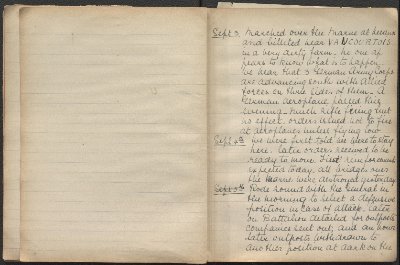 Sept 3. Marched over the Marne at
and billeted near VANCOURTOIS
in a very dirty farm. No one ap
pears to know what is to happen
We hear that 3 German Army Corps
are advancing south with Allied
forces on three sides of them. A
German Aeroplane passed this
evening. Much rifle firing but
no effect. orders issued not to fire
at aeroplanes unless flying low
Sept 4th We were first told we were to stay
here. Later orders received to be
ready to move. First reinforcement
expected today. All bridges over
the Marne were destroyed yesterday
Sept 5th Rode round with the General in
the morning to select a defensive
position in case of attack. Later
on Battalion detailed for outposts
companies sent out, and an hour
later outposts withdrawn to
another position at dark on the